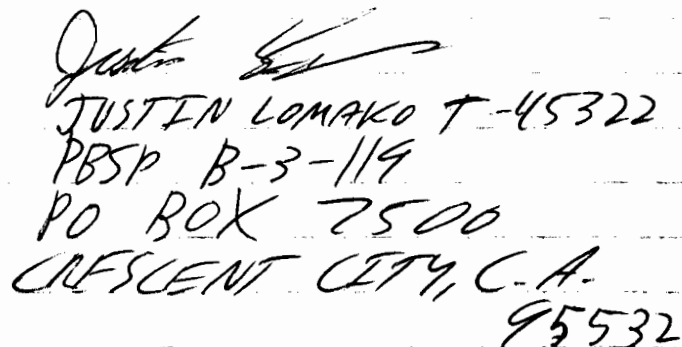 Justin
JUSTIN LOMAKO T-45322
PBSP B-3-119
PO BOX 7500
CRESCENT CITY, C.A.
95532